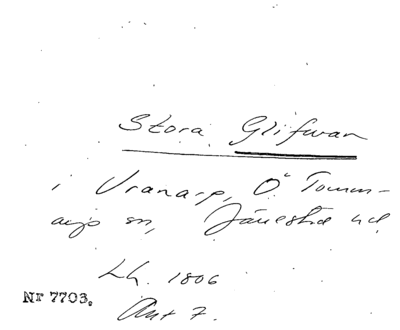 Stora Glifwan
i Vranarp, Ö Tomm-
arps sn, Järrestad hd.
Lh. 1806
Nr 7703.
Ant 7.